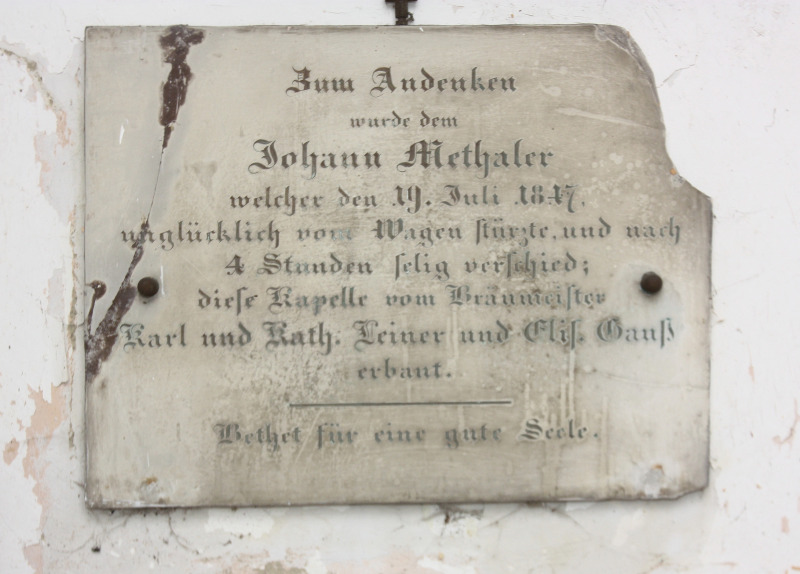 Zum Andenken
wurde dem
Johann Methaler
welcher den 19. Juli 1847,
unglücklich vom Wagen stürzte, und nach
4 Stunden selig verschied;
diese Kapelle vom Bräumeister
Karl und Kath. Leiner und Elis. Gauß
erbaut.
Bethet für eine gute Seele.